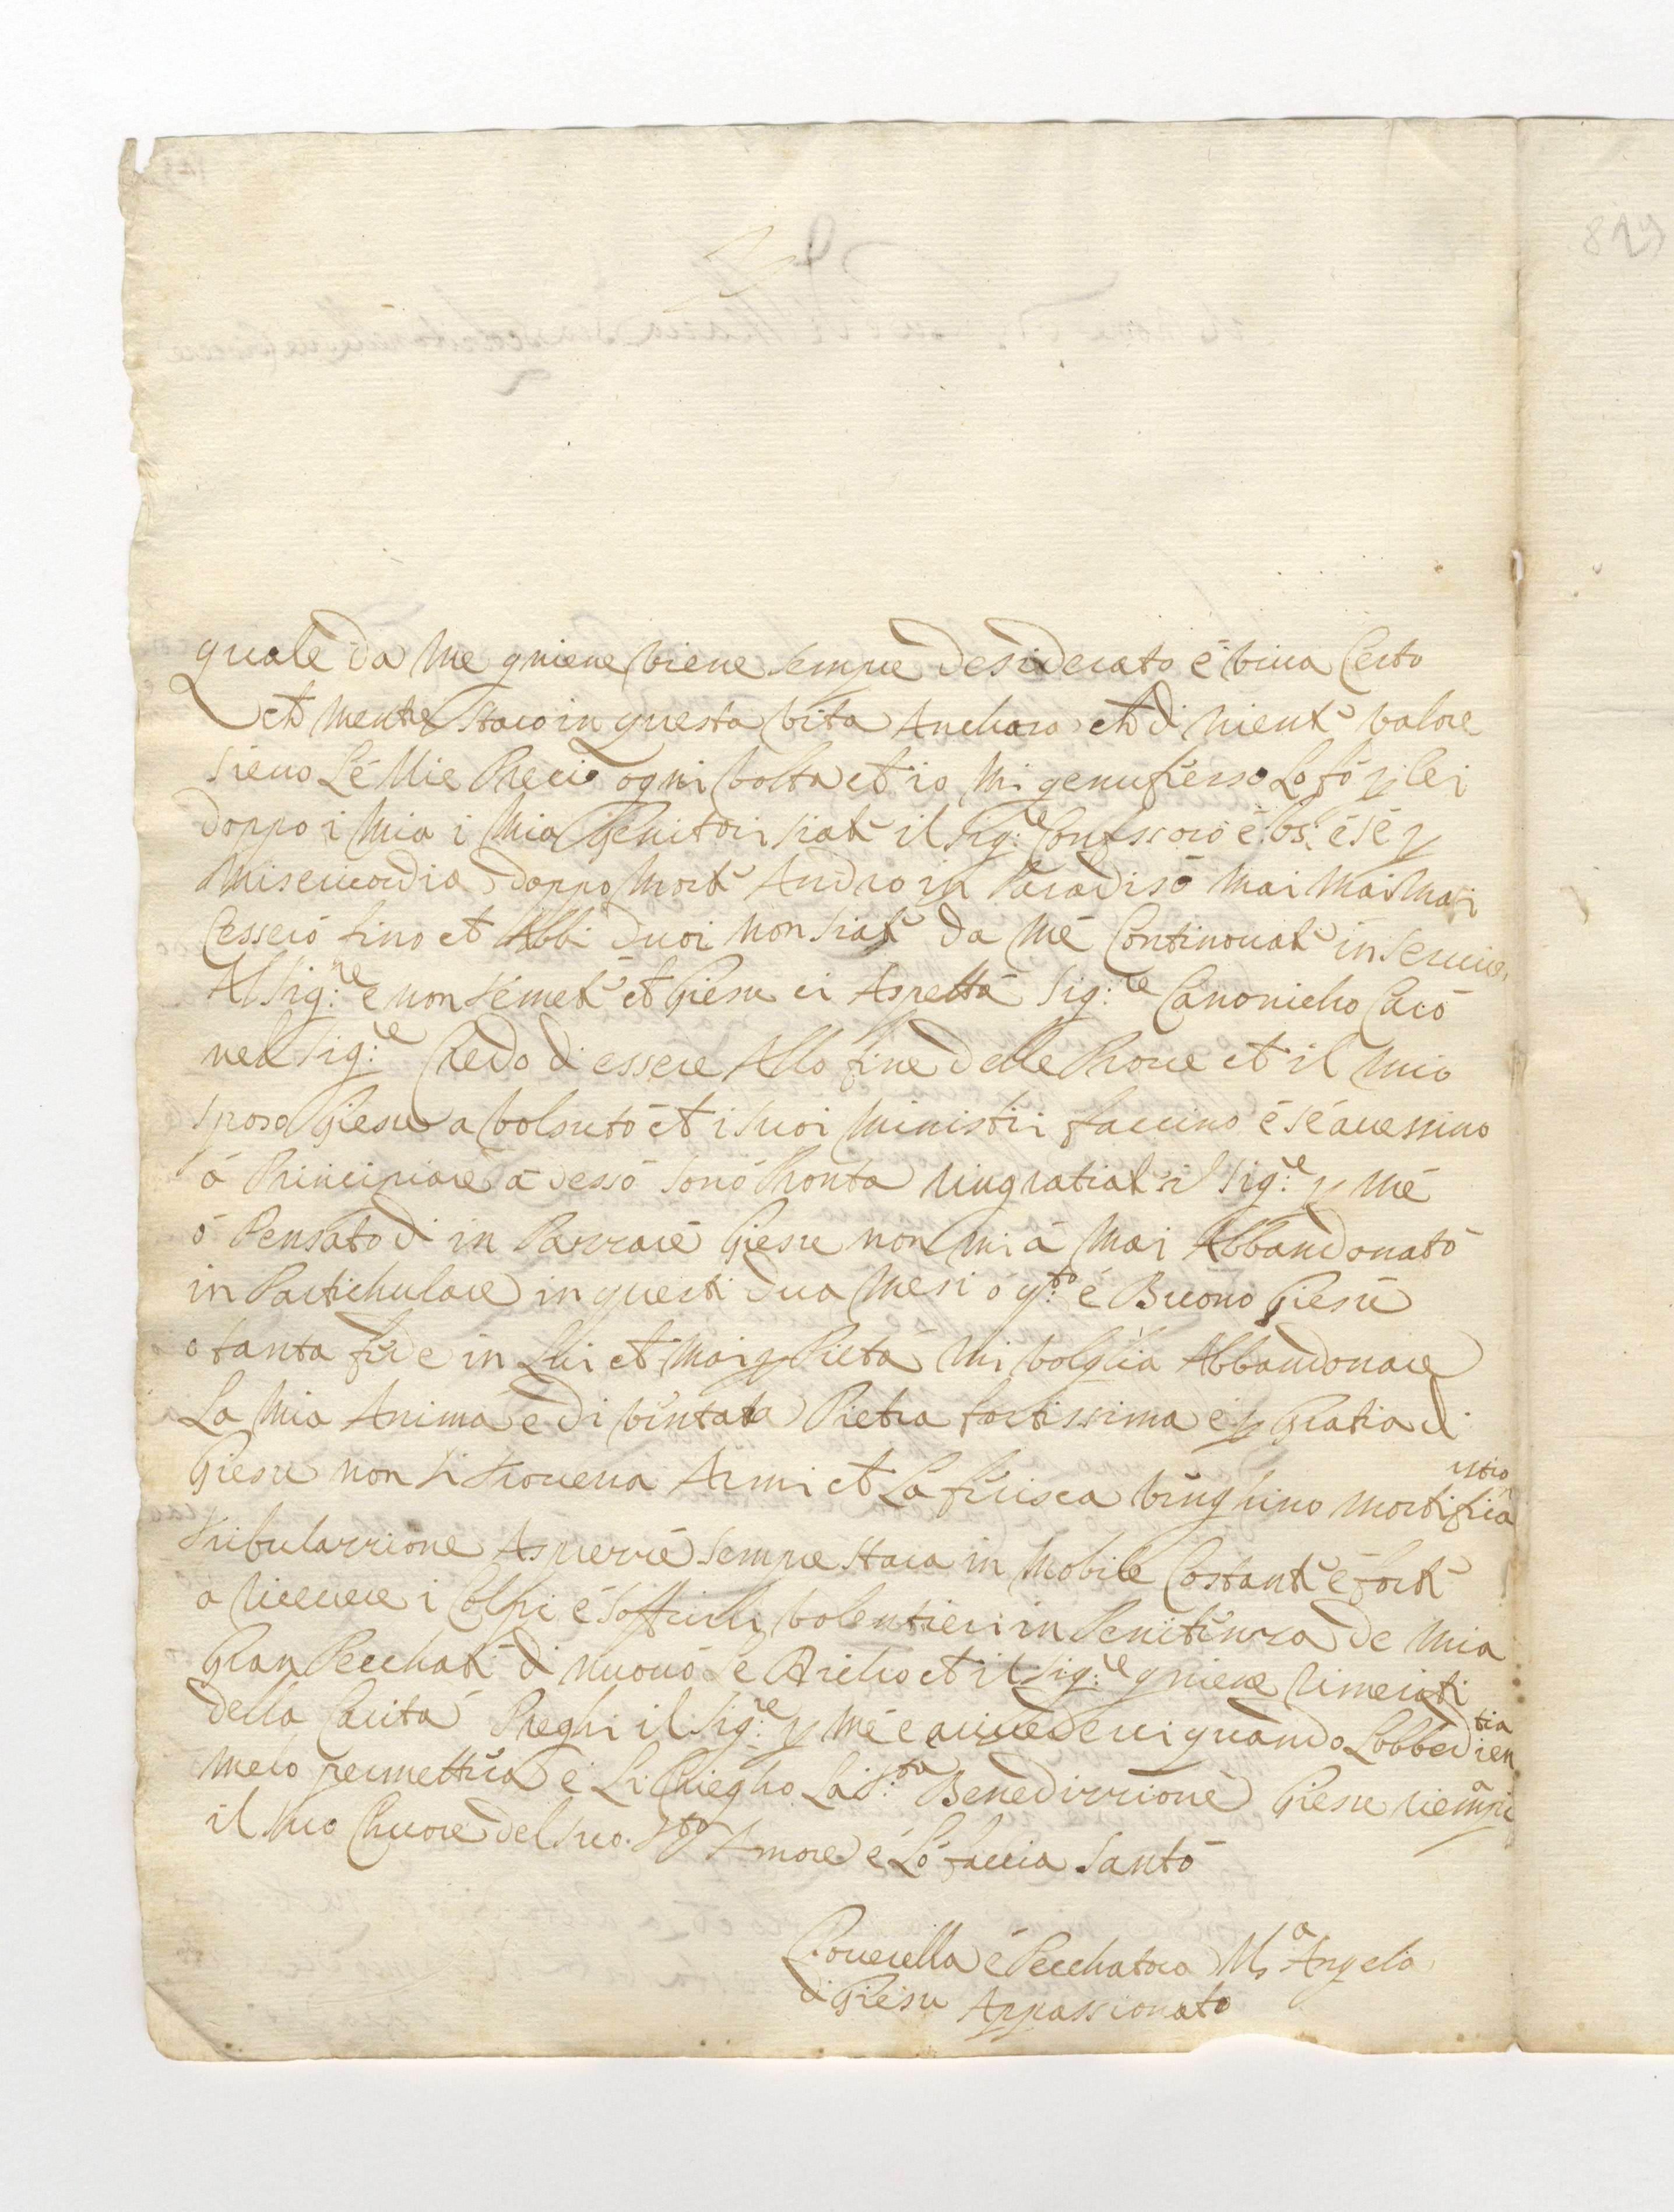 quale da me gniene viene sempre desiderato e viva Certo
ch mentre staro in questa vita Anchora ch di nient valore
sieno Le Mie Preci ogni volta ch io mi genufresso Lo fò p lei
doppo i mia i mia Genitori siat il Sig:re Confessoro è
Misericordia doppo mort Andro in Paradisò mai mai mai
Cesserò fino ch Abbi duoi non siat da mè Continouat in
Al Sig:re e non ch Giesu ci Aspettà Sig:re Canonicho Carò
nel Sig:re Credo di essere Allo fine delle Prove ch il mio
sposo Giesu a volsutò ch i suoi ministri faccino è
ò Principiare adessò sonò Pronta ringratiat il Sig:re p mè
ò Pensato d in Pazzare Giesu non mi à mai Abbandonatò
in Partichulare in questi dua mesi o q:to è Buono Giesù
o tanta fede in Lui ch mai p Pietà mi volglia Abbandonare
La mia Anima è diventata Pietra fortissima è p Gratia di
Giesu non si trovera Armi ch La ferisca venghino
tribulazzione Asprezze sempre stara in mobile Costant è fort
a ricevere i Colpi è soffrirli volentieri in Penitenza de mia
Gran Pecchat di nuovò Le Pricho ch il Sig:re gniene rimeriti
della Carità Preghi il Sig:re p mè e a rivederci quando Lobbedientia
melo permetterà è Li Chiegho La S:ta Benedizzionè Giesu riempia
il suo Chuore del suo S:to Amore è Lò faccia Santò
Poverella è Pecchatora M:a Angela
di Giesu Appassionato